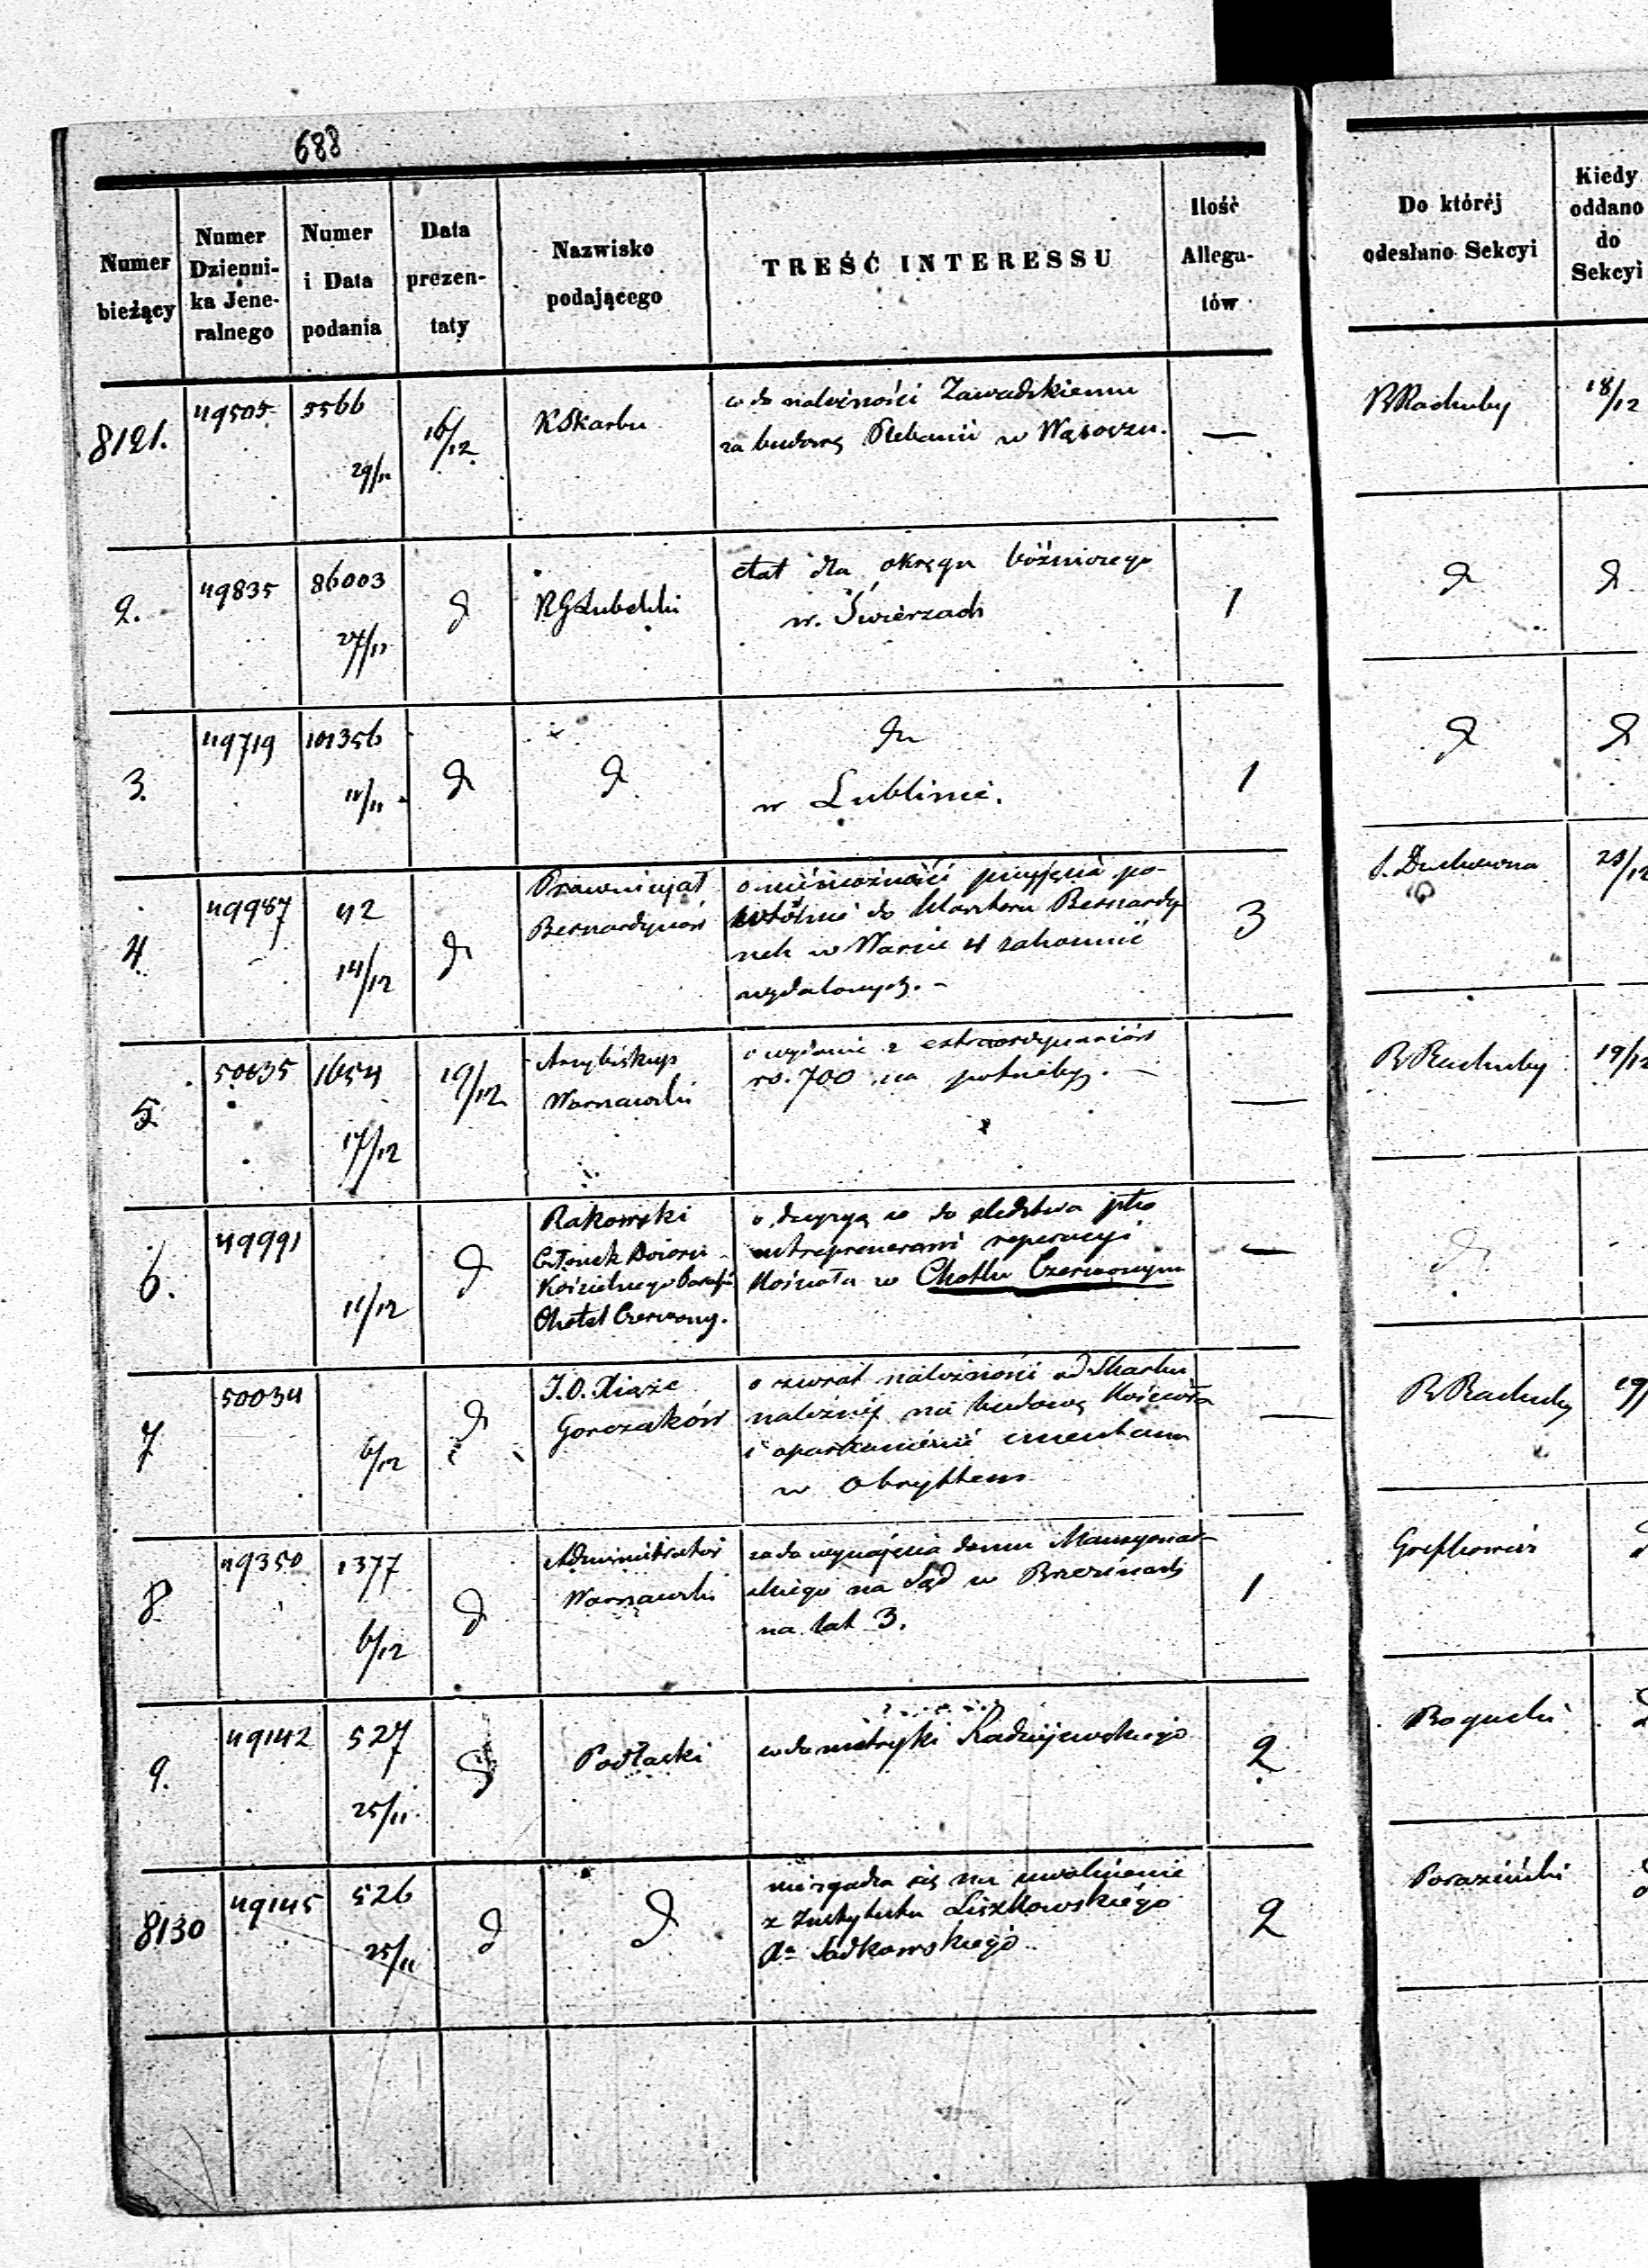 688
Numer bieżący
Numer Dzienni- ka Jene- ralnego
Numer i Data podania
Data prezen- taty
Nazwisko podającego
TREŚĆ INTERESSU
Ilość Allega- tów
Do któréj odesłano Sekcyi
Kiedy oddano do Sekcyi
8121. 49505 5566 29/11 16/12 K Skarbu
w do należności Zawadzkiemu
za budowę Plebanii w Wąsoszu. —
R Rachuby 18/12
2. 49835 86003 27/11 d RGLubelski
etat dla okręgu bóźniczego
w Świerzach 1
d d
3. 49719 101356 11/11 d d
dn
w Lublinie. 1
d d
4. 49987 42 14/12 d
Prowincyał
Bernardynów
o niemożności przyjęcia po-
wtórnie do Klasztoru Bernardy
nek w Warcie 4 zakonnic
wydalonych. - 3
S. Duchowna 23/12
5. 50035 1654 17/12 19/12
Arcybiskup
Warszawski
o wydanie z extraordynariów
rs. 700 na potrzeby. —
R Rachuby 19/12
6. 49991 11/12 d
Rakowski
Członek Dozoru
Kościelnego Parafii
Chotel Czerwony.
o decyzją w do śledztwa pko
entreprenerowi reperacyi
Kościoła w Chotlu Czerwonym —
d
7 50034 6/12 d
J.O. Xiąże
Gorczaków
o zwrot należności od Skarbu
należnéj na budowę Kościoła
i oparkanienie cmentarza
w Obryttem —
R Rachuby 19/
8 49350 1377 6/12 d
Administrator
Warszawski
w do wynajęcia domu Mansyonar-
skiego na Sąd w Brzezinach
na lat 3. 1
9. 49142 527 25/11 d Podlaski
w do metryki Radziejewskiego 2
Bogucki
8130 49145 526 25/11 d d
niezgadza się na uwolnienie
z Instytutu Liszkowskiego
Sadkowskiego 2
Poraziński